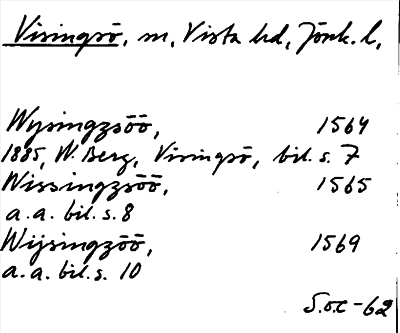 Visingsö, m, Vista hd, Jönk. l,
Wysingzsöö, 1564
1885, W. Berg, Visingsö, bil. s. 7
Wissingzsöö, 1565
a. a. bil. s. 8
Wijsingzöö, 1569
a. a. bil. s. 10
S.o.C -62